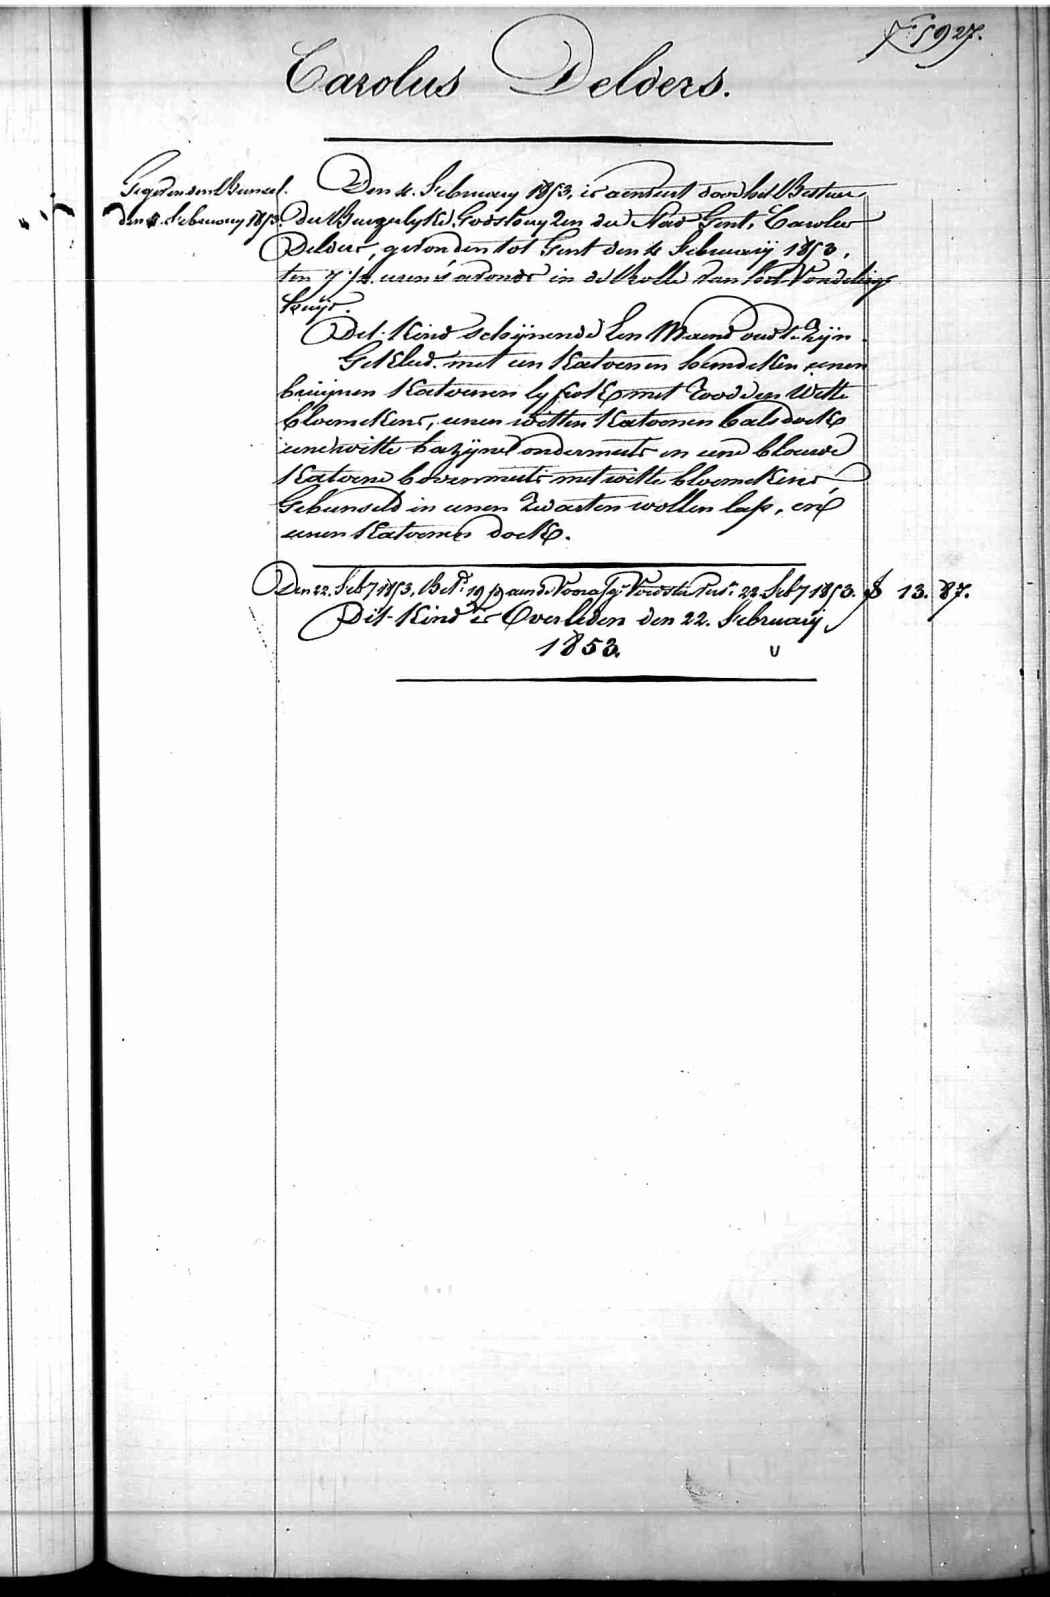 F° 5927.
Carolus Delders.
Gegeven den Bunsel.
den 4. February 1853.
Den 4. February 1853, is aenveert door het Bestuer
der Burgerlyke Godshuyzen der Stad Gent, Carolus
Delders, gevonden tot Gent den 4 February 1853,
ten 7 1/2 uren 's avonds in de Rolle van het Vondelings
huys.
Dit Kind schijnende Een Maend oud te Zijn
Gekleed met een Katoenen hemdeken eenen
bruijnen Katoenen lyfrok met Roode en Witte
bloemekens, eenen witten Katoenen halsdoek
eene witte bazijne ondermuts en eene blauwe
Katoene bovenmuts met witte bloemekens,
Gebunseld in eenen Zwarten wollen lap, en
eenen Katoenen doek.
Den 22. Feby 1853. Bet. 19 aen de Voedster 22 Feby 1853. 13. 87.
Dit Kind is Overleden den 22. February
1853.